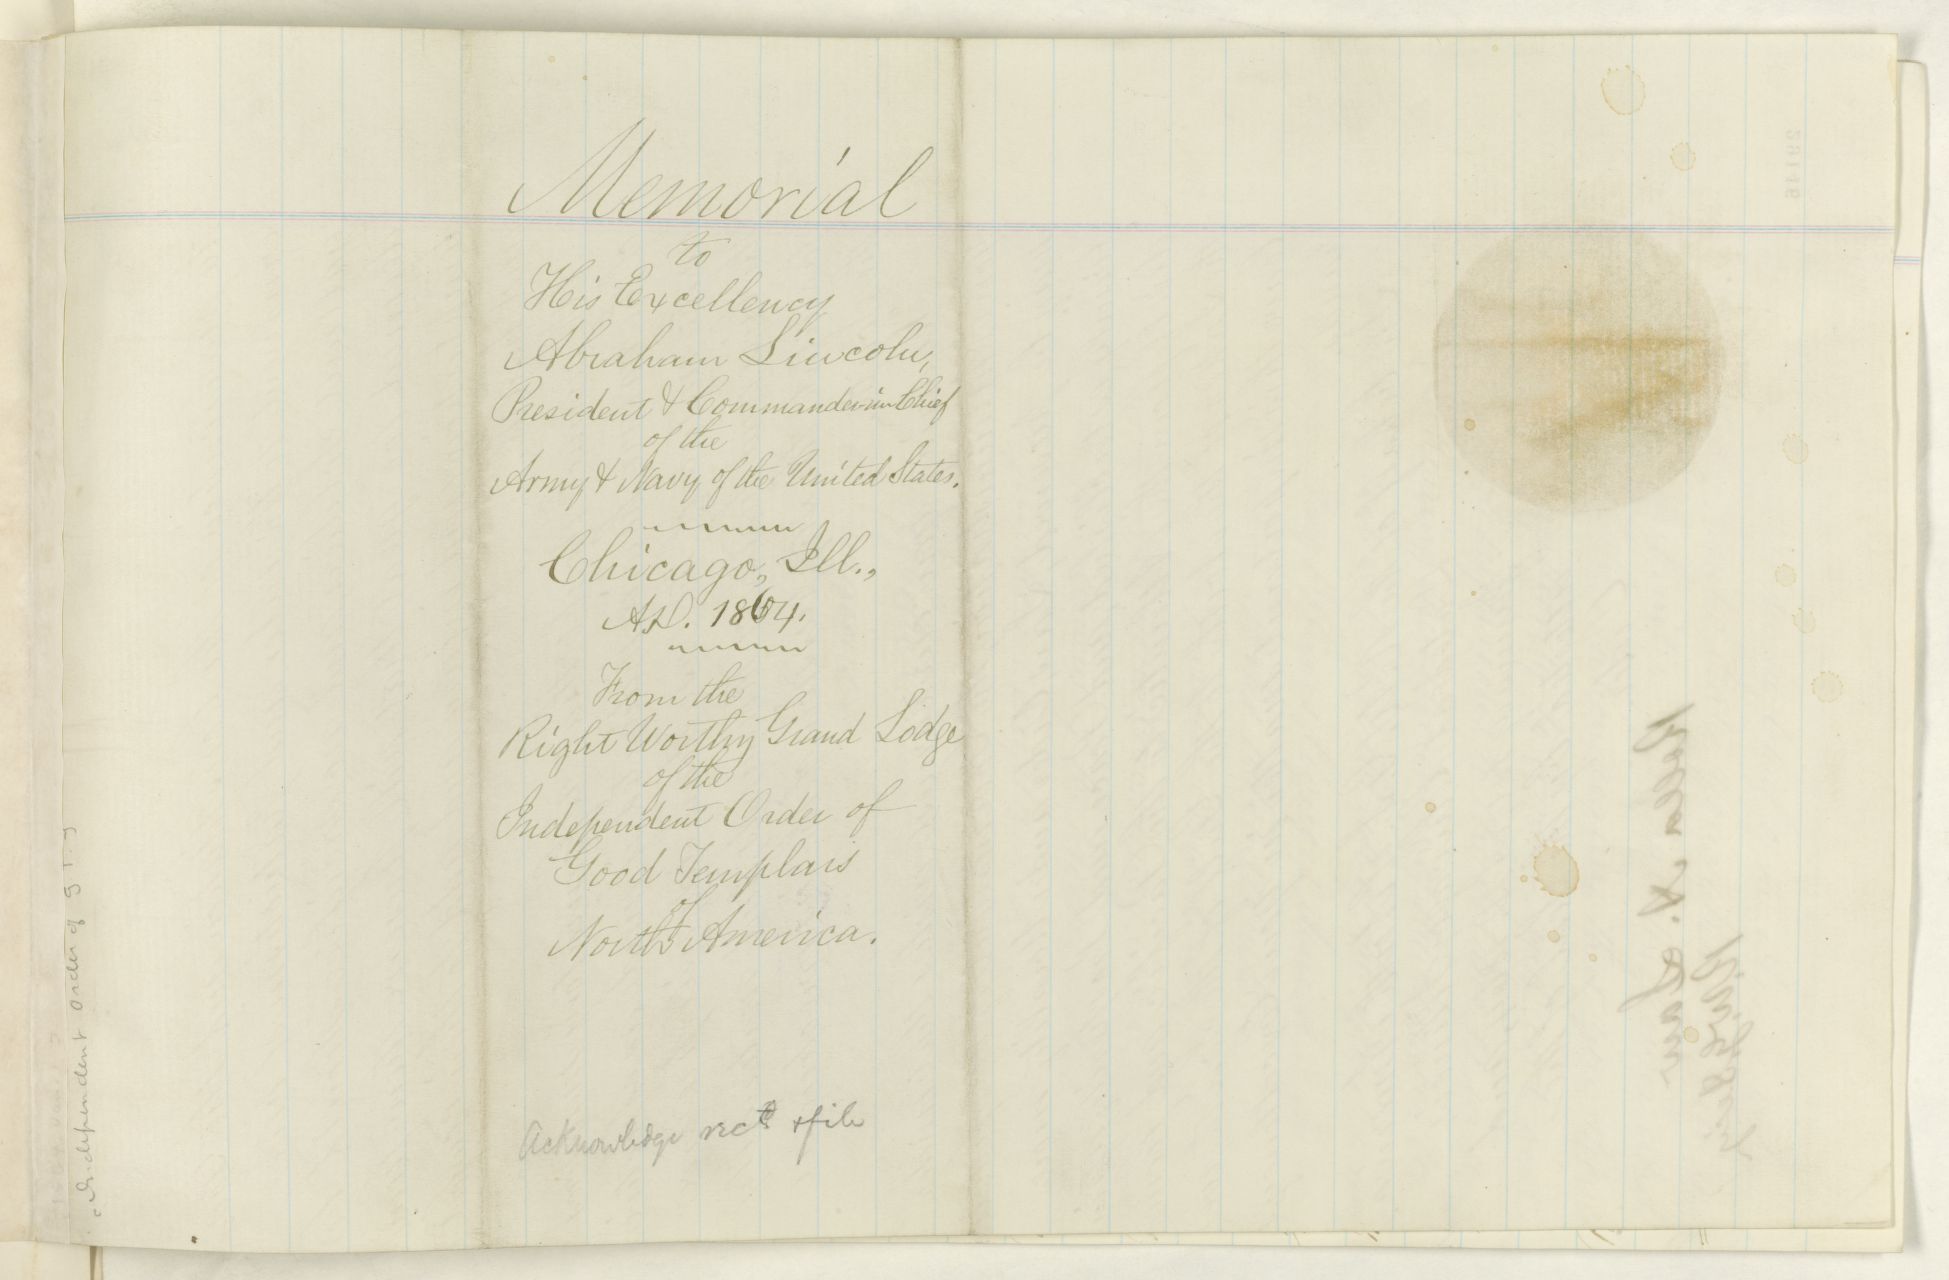 Memorial
to
His Excellency
Abraham Lincoln,
President & Commander-in-Chief
of the
Army & Navy of the United States.
Chicago, Ill.,
A.D. 1864.
From the
Right Worthy Grand Lodge
of the
Independent Order of
Good Templars
of
North America.
Acknowledge rect & file
Independent Order of G. T.